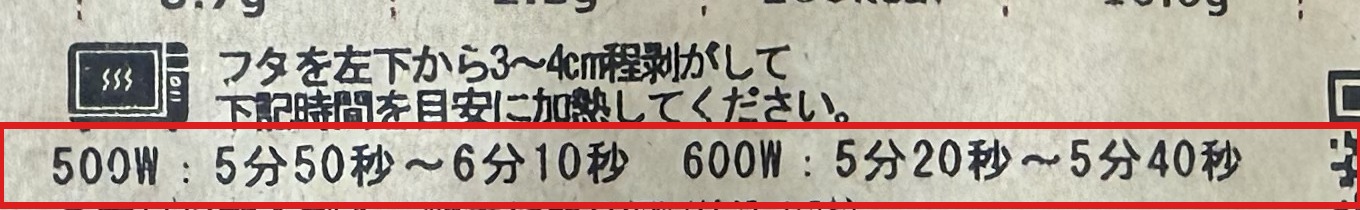 フタを左下から3～4cm程剥がして
下記時間を目安に加熱してください。
500W：5分50秒～6分10秒　600W：5分20秒～5分40秒